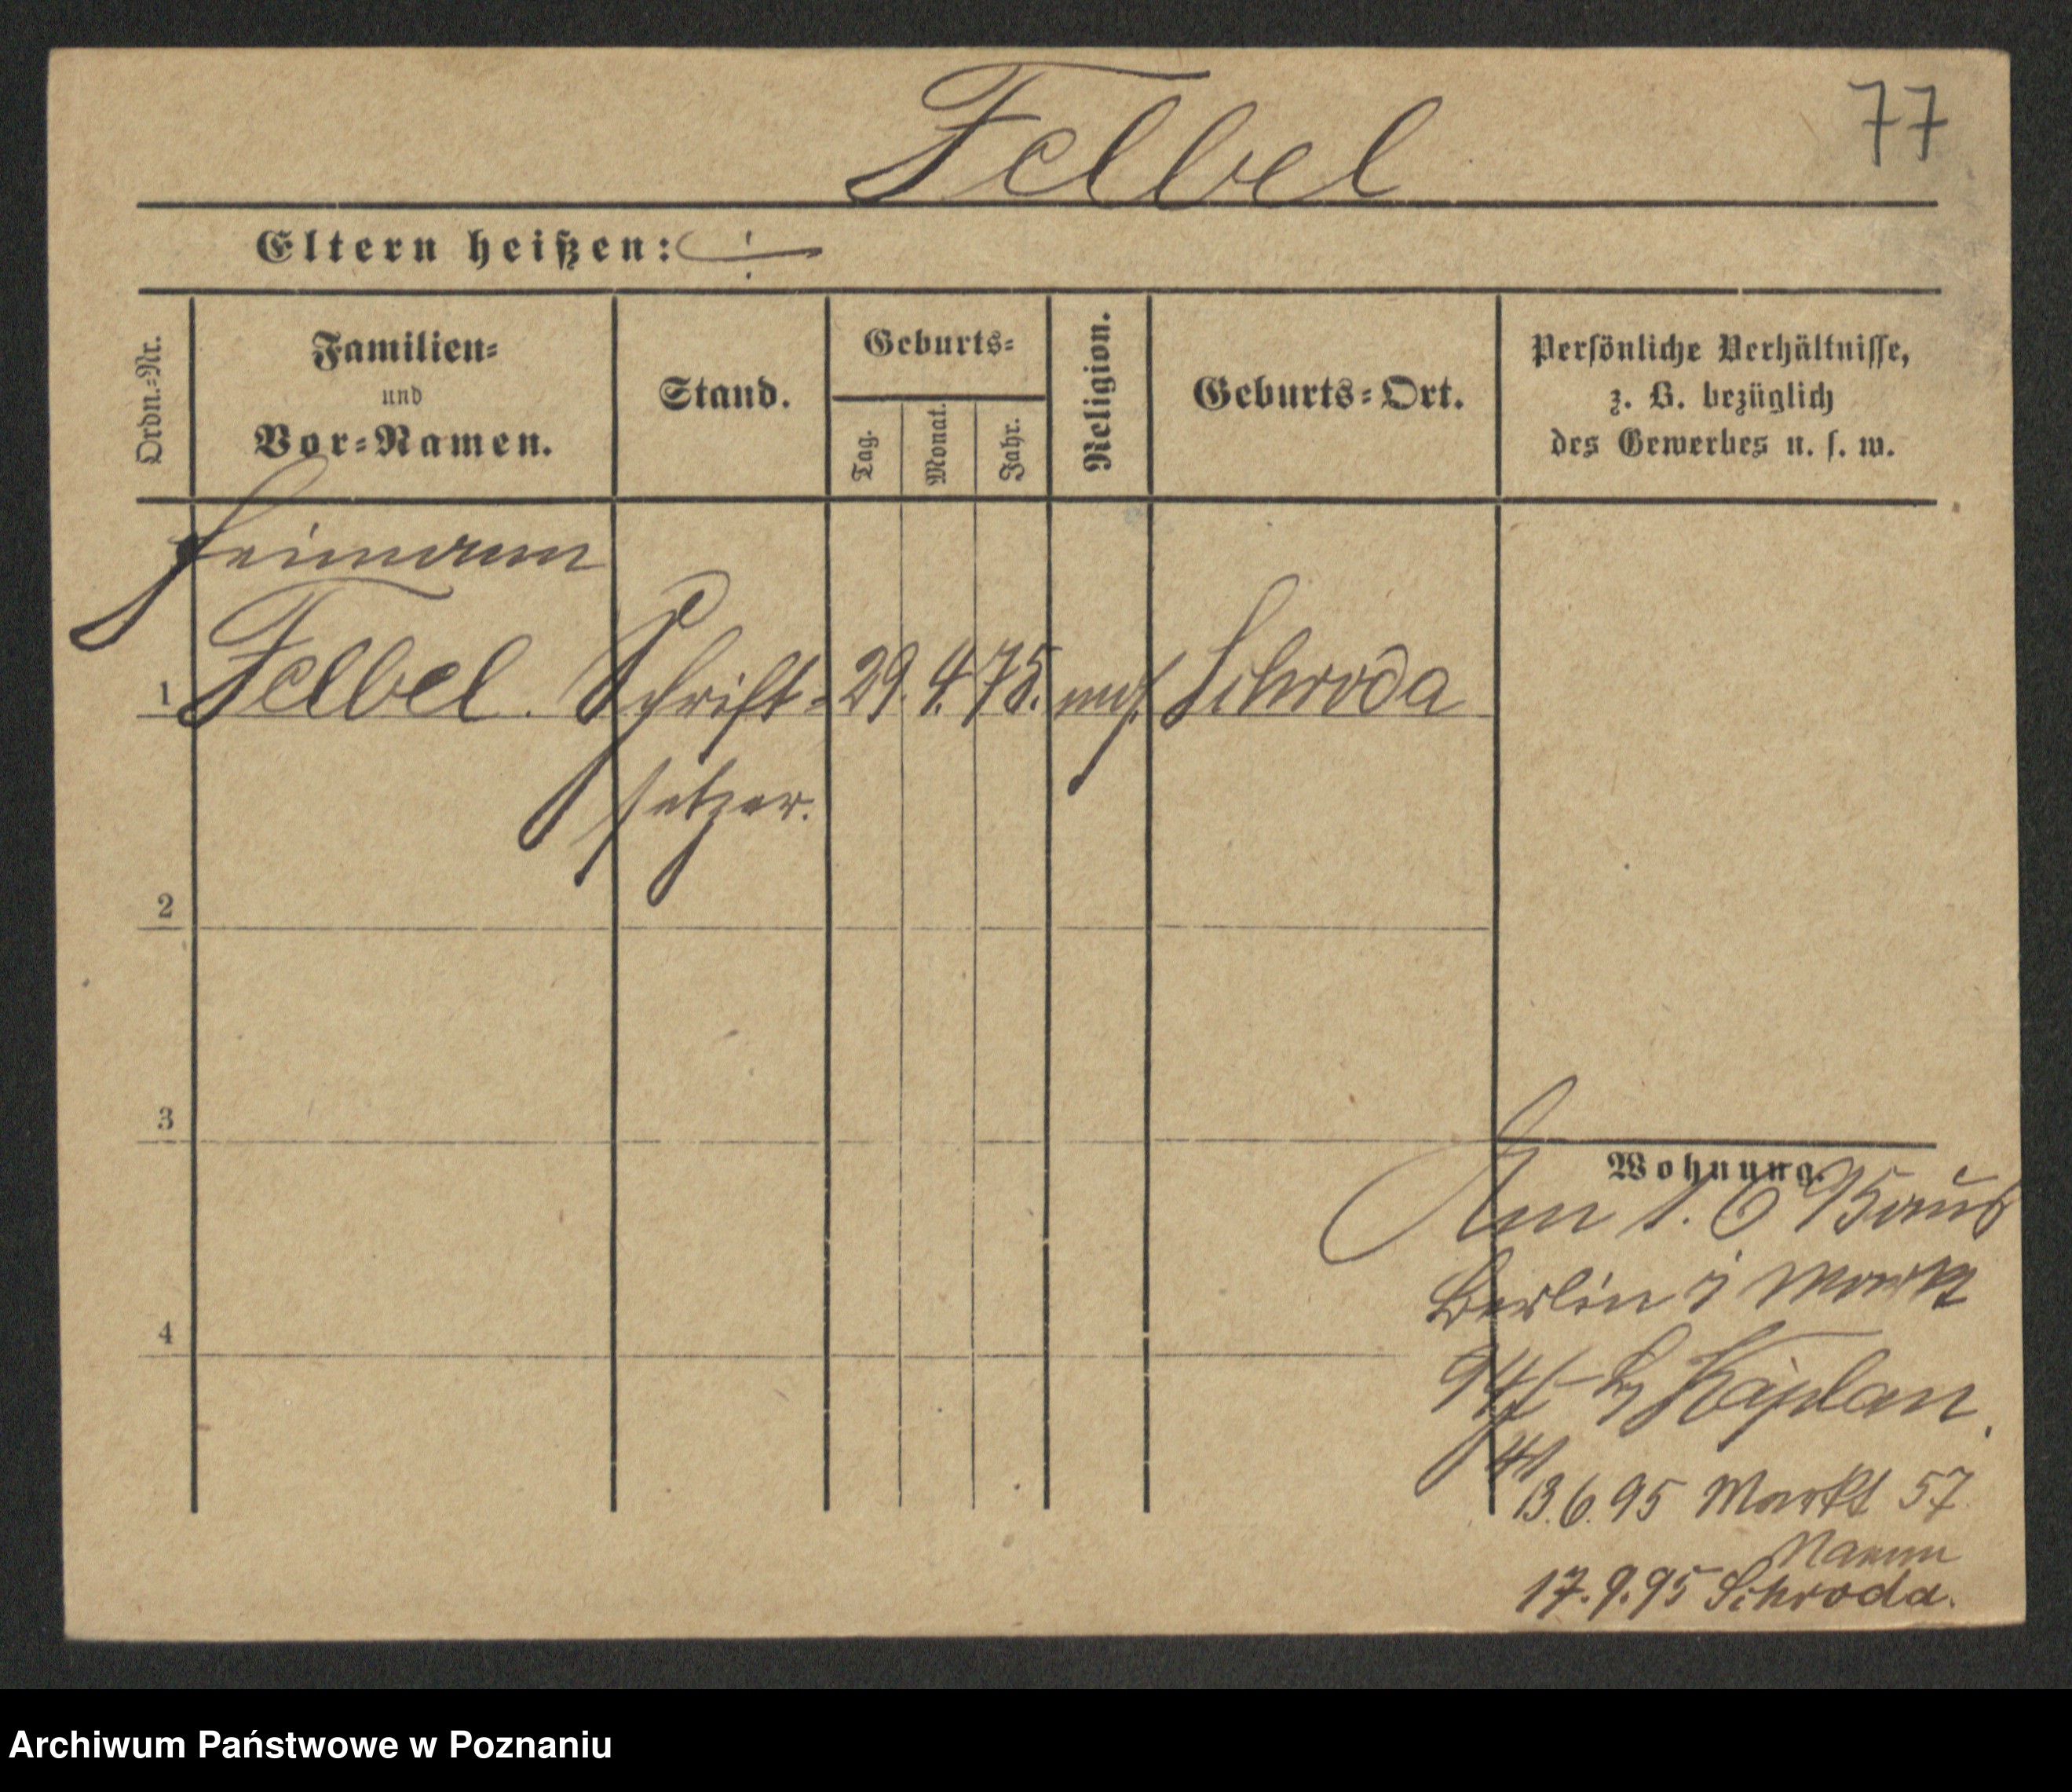 Felbel
77
Eltern heißen:
Ordn.-Nr.
Familien-
und
Vor-Namen.
Stand.
Geburts-
Tag.
Monat.
Jahr.
Religion.
Geburts-Ort.
Persönliche Verhältnisse,
z. B. bezüglich
des Gewerbes u. s. w.
Heimann
1 Felbel. Schrift- 29. 4. 75. mos. Schroda
setzer.
2
3
4
Wohnung.
Am 1. 6 95 aus
Berlin Markt
Kaplan.
13.6.95 Markt 57
17.9.95 Schroda.
Archiwum Państwowe w Poznaniu